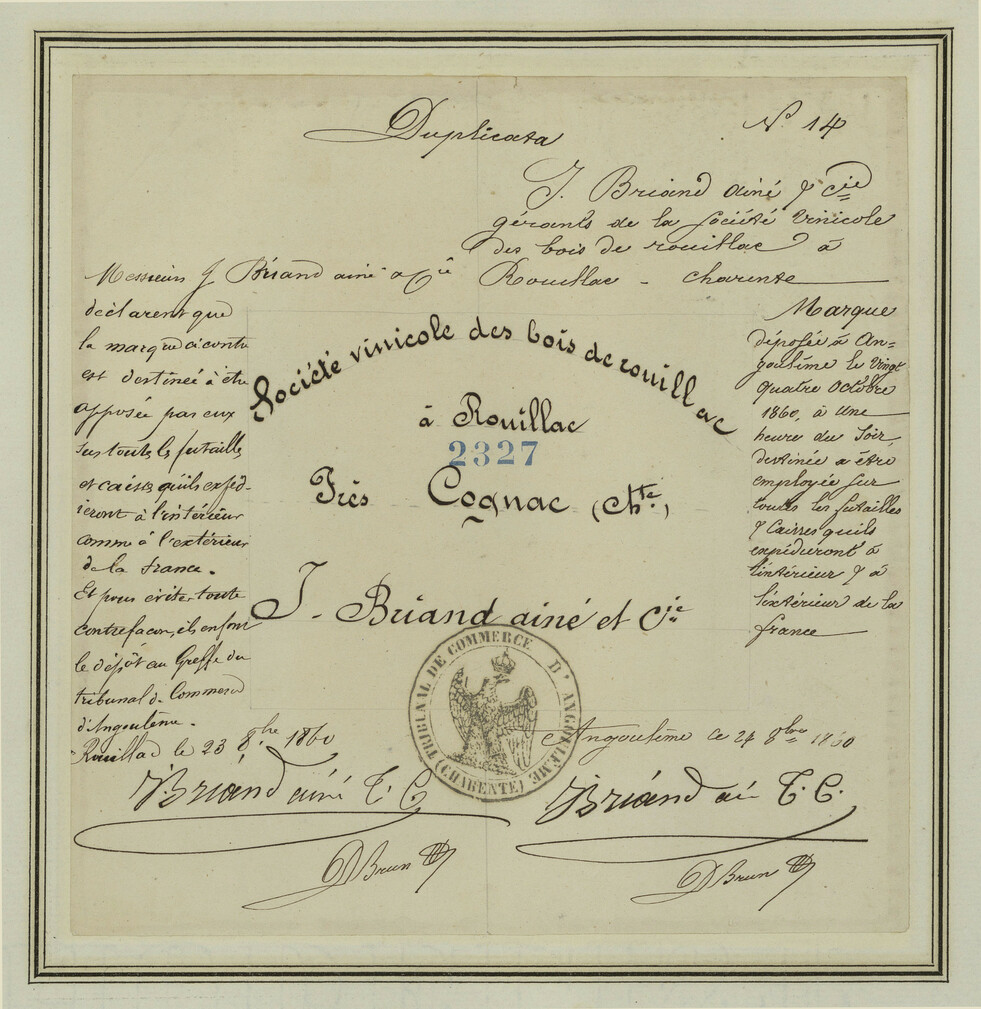 Duplicata
N° 14
J. Briand ainé & Cie
gérants de la Société Vinicole
des bois de rouillac à
Rouillac - charente
Messieurs J Briand ainé & Cie
déclarent que
la marque ci contre
est destinée à être
apposée par eux
sur toutes les futailles
et caisses qu'ils expéd-
ieront à l'intérieur
comme à l'extérieur
de la france.
Et pour éviter toute
contrefaçon, ils en font
le dépôt au Greffe du
tribunal de Commerce
d'Angoulême.
Rouillac le 23 8bre 1860
Briand ainé & C
D Brun
Société vinicole des bois de rouillac
à Rouillac
2327
Près Cognac (Chte.)
J. Briand ainé et Cie
TRIBUNAL DE COMMERCE D'ANGOULEME
(CHARENTE)
Marque
déposée à An=
goulême le Vingt
quatre Octobre
1860, à une
heure du Soir,
destinée a être
employée sur
toutes les futailles
& Caisses quils
expédieront à
l'intérieur & à
l'extérieur de la
france
Angoulême le 24 8bre 1860
Briand ai & C.
D Brun